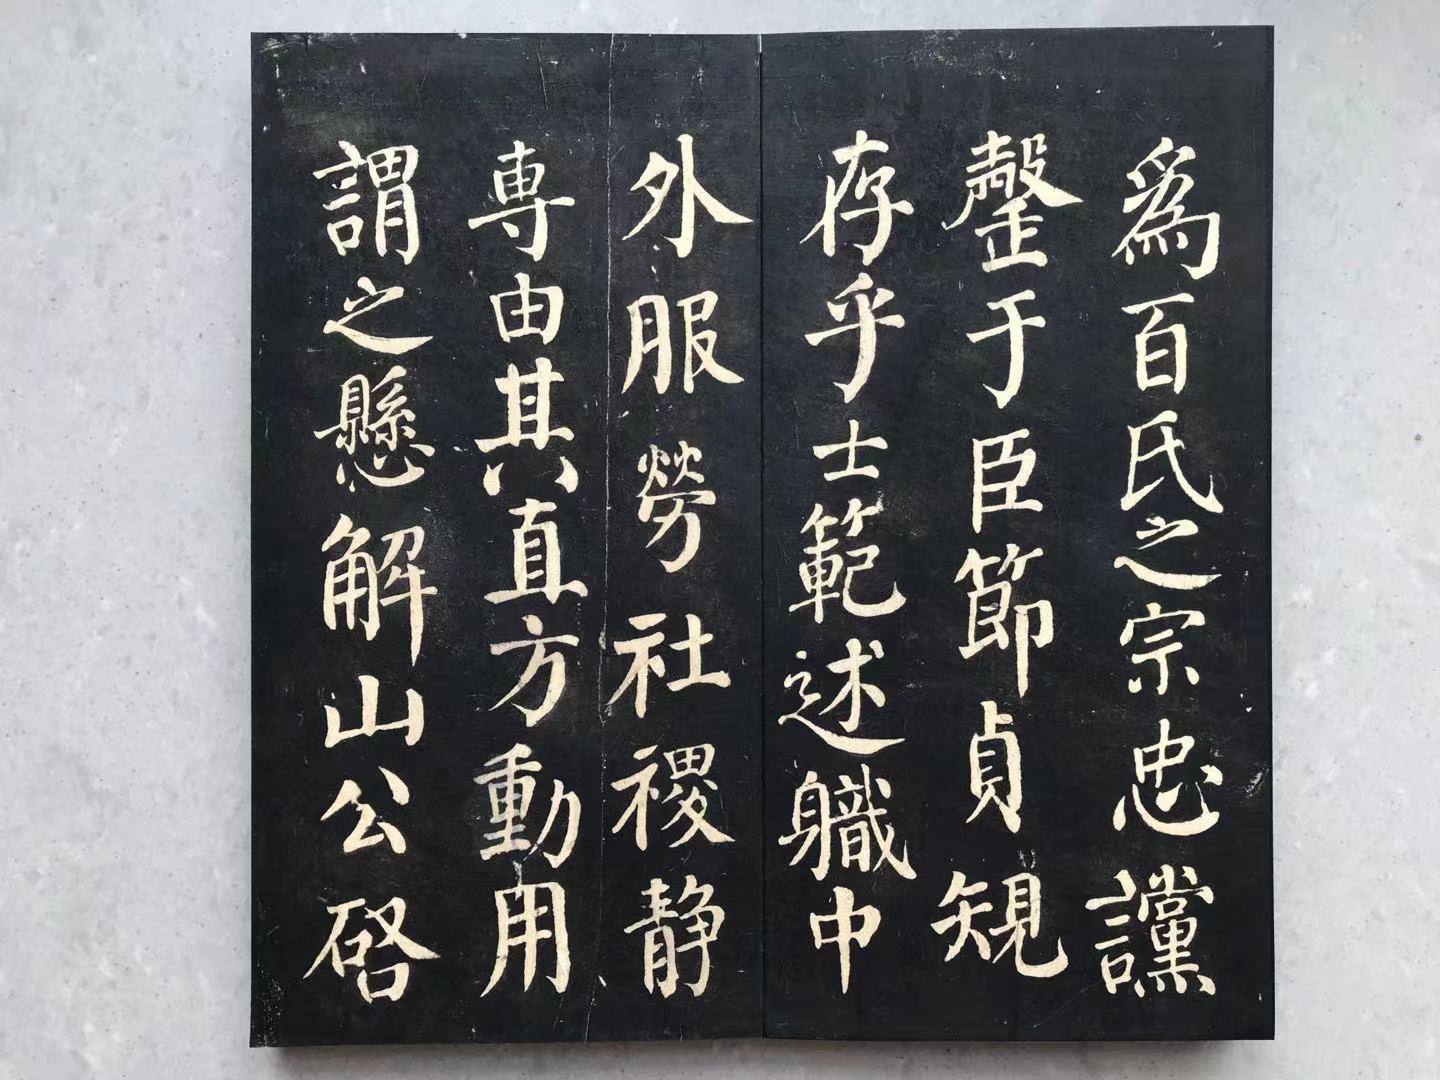 為百氏之宗忠讜
罄于臣節貞規
存乎士範述職中
外服勞社稷静
專由其直方動用
謂之懸解山公啓